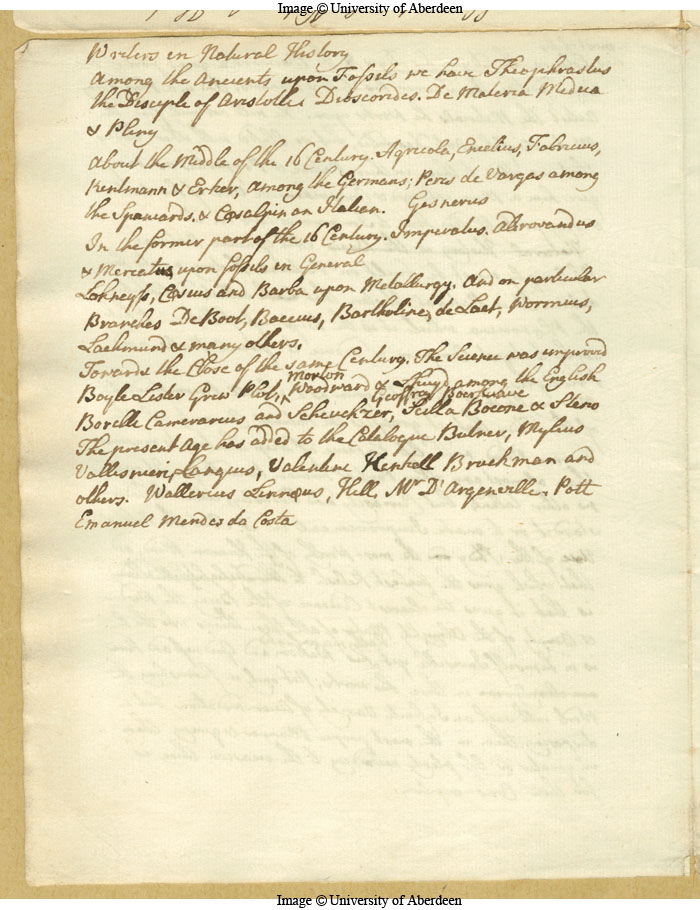 Image © University of Aberdeen
Writers in Natural History
Among the Ancients upon Fossils we have Theophrastus
the Disciple of Aristotle, Dioscorides. De Materia Medica
& Pliny
About the Middle of the 16 Century. Agricola, Encelius, Fabricius,
Kentmann & Erker, among the Germans; Peres de Vargas among
the Spaniards. & Cæsalpin an Italian. Gesnerus
In the former part of the 16 Century. Imperatus. Aldrovandus
& Mercatus upon fossils in General
Lohneyss, Cæsius and Barba upon Metallurgy. And on particular
Branches De Boot, Baccius, Bartholine, de Laet, Wormius,
Lachmund & many others.
Towards the Close of the same Century. The Science was improved
Morton
Boyle Lister Grew Plot, Woodward & Lhuyd among the English
Geoffroy Boerhaave
Borelle Camerarius and Scheuchzer, Scilla Bocone & Steno
The present Age has added to the Catalogue Butner, Mylius
Vallisnieri, Langius, Valentine Henkell Bruckman and
others. Wallerius Linnæus, Hill, Mr D'Argenville. Pott
Emanuel Mendes da Costa
Image © University of Aberdeen